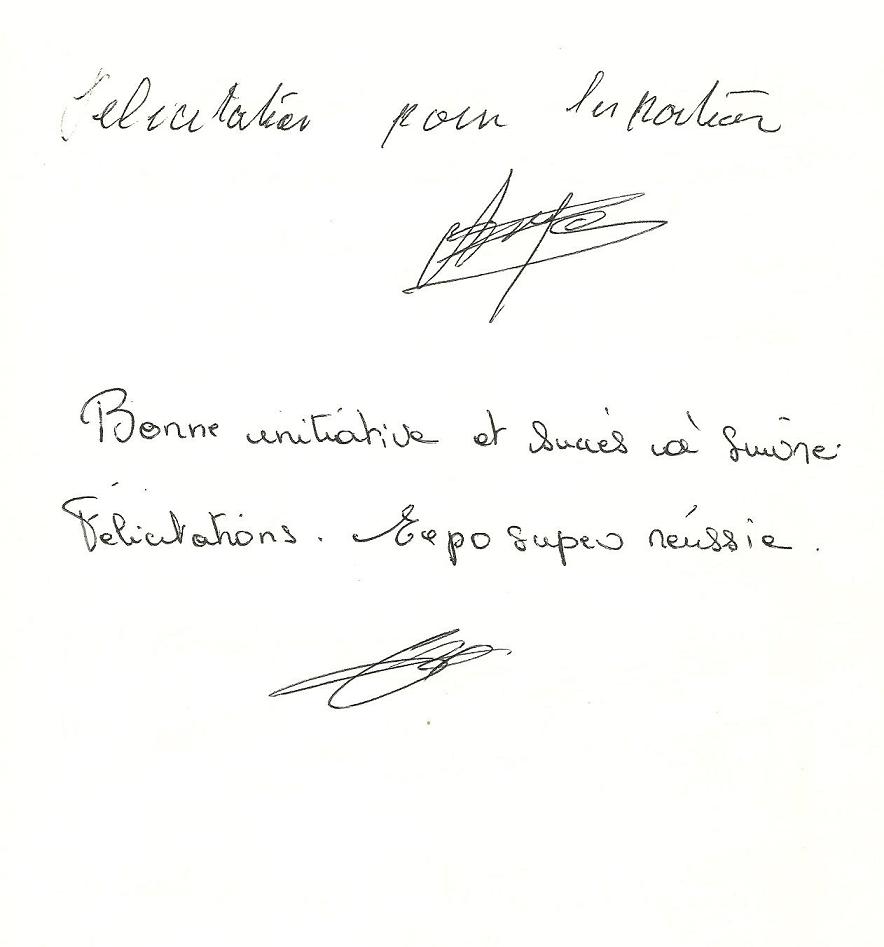 Félicitation pour
Bonne initiative et succès à suivre.
Félicitations. Expo super réussie.